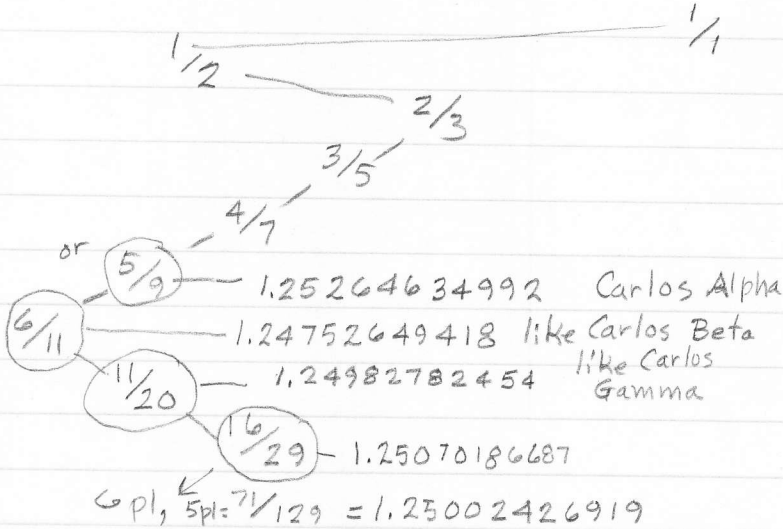 1/1
1/2
2/3
3/5
4/7
or
5/9 1.252644634992 Carlos Alpha
6/11 1.24752649418 like Carlos Beta
11/20 1.24982782454 like Carlos
Gamma
16/29 1.25070186687
6pl, 5pl=71/129 = 1.25002426919